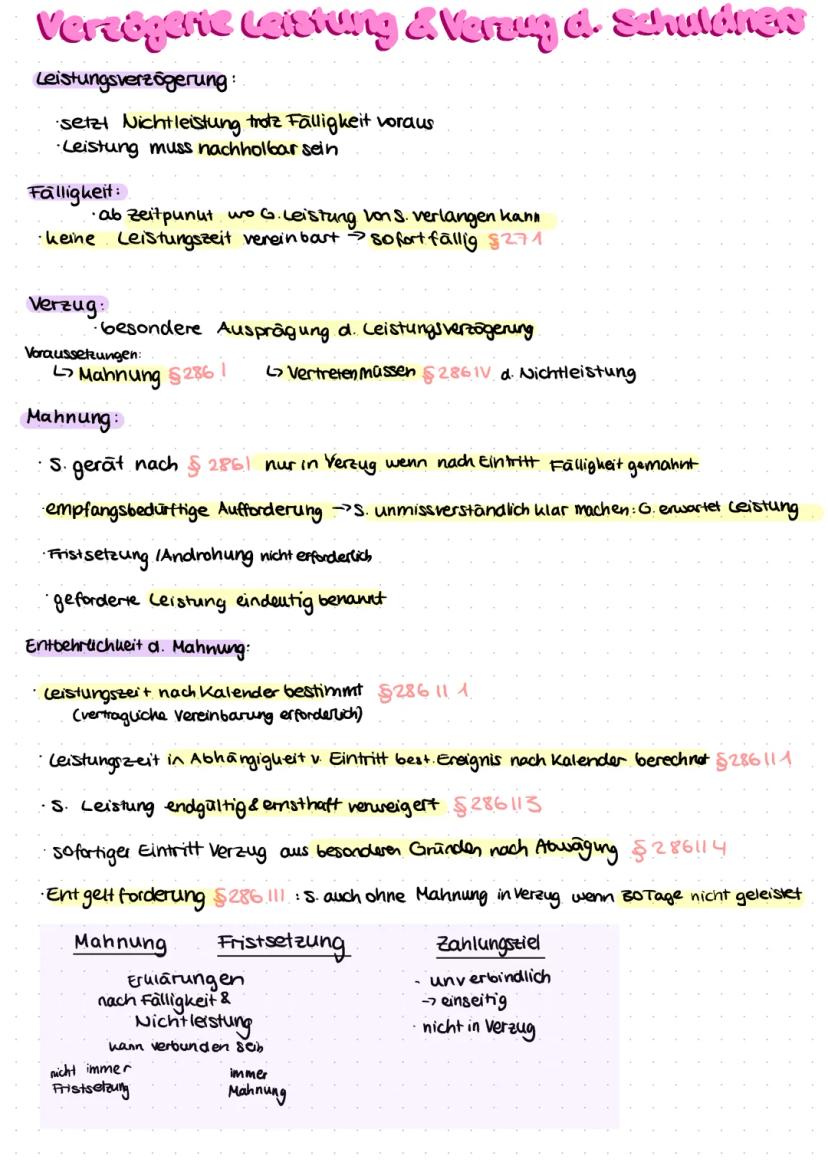 Verzögerte Leistung & Verzug d. Schuldners
Leistungsverzögerung:
· setzt Nichtleistung trotz Fälligkeit voraus
· Leistung muss nachholbar sein
Fälligkeit:
· ab Zeitpunut wo G. Leistung von S. verlangen kann
· keine Leistungszeit vereinbart → sofort fällig §271
Verzug:
· besondere Ausprägung d. Leistungsverzögerung
Voraussetzungen:
↳ Mahnung §286 I ↳ Vertretenmüssen §286 IV d. Nichtleistung
Mahnung:
· S. gerät nach § 286 I nur in Verzug wenn nach Eintritt Fälligkeit gemahnt
· empfangsbedürftige Aufforderung → S. unmissverständlich klar machen: G. erwartet Leistung
· Fristsetzung / Androhung nicht erforderlich
· geforderte Leistung eindeutig benannt
Entbehrlichkeit d. Mahnung:
· Leistungszeit nach Kalender bestimmt §286 II 1
(vertragliche Vereinbarung erforderlich)
· Leistungszeit in Abhängigkeit v. Eintritt best. Ereignis nach Kalender berechnet §286 II 1
· S. Leistung endgültig & ernsthaft verweigert §286 II 3
· sofortiger Eintritt Verzug aus besonderen Gründen nach Abwägung §286 II 4
· Entgeltforderung §286 III : S. auch ohne Mahnung in Verzug wenn 30 Tage nicht geleistet
Mahnung Fristsetzung Zahlungsziel
Erklärungen
nach Fälligkeit &
Nichtleistung
kann verbunden sein
nicht immer
Fristsetzung
immer
Mahnung
- unverbindlich
→ einseitig
· nicht in Verzug